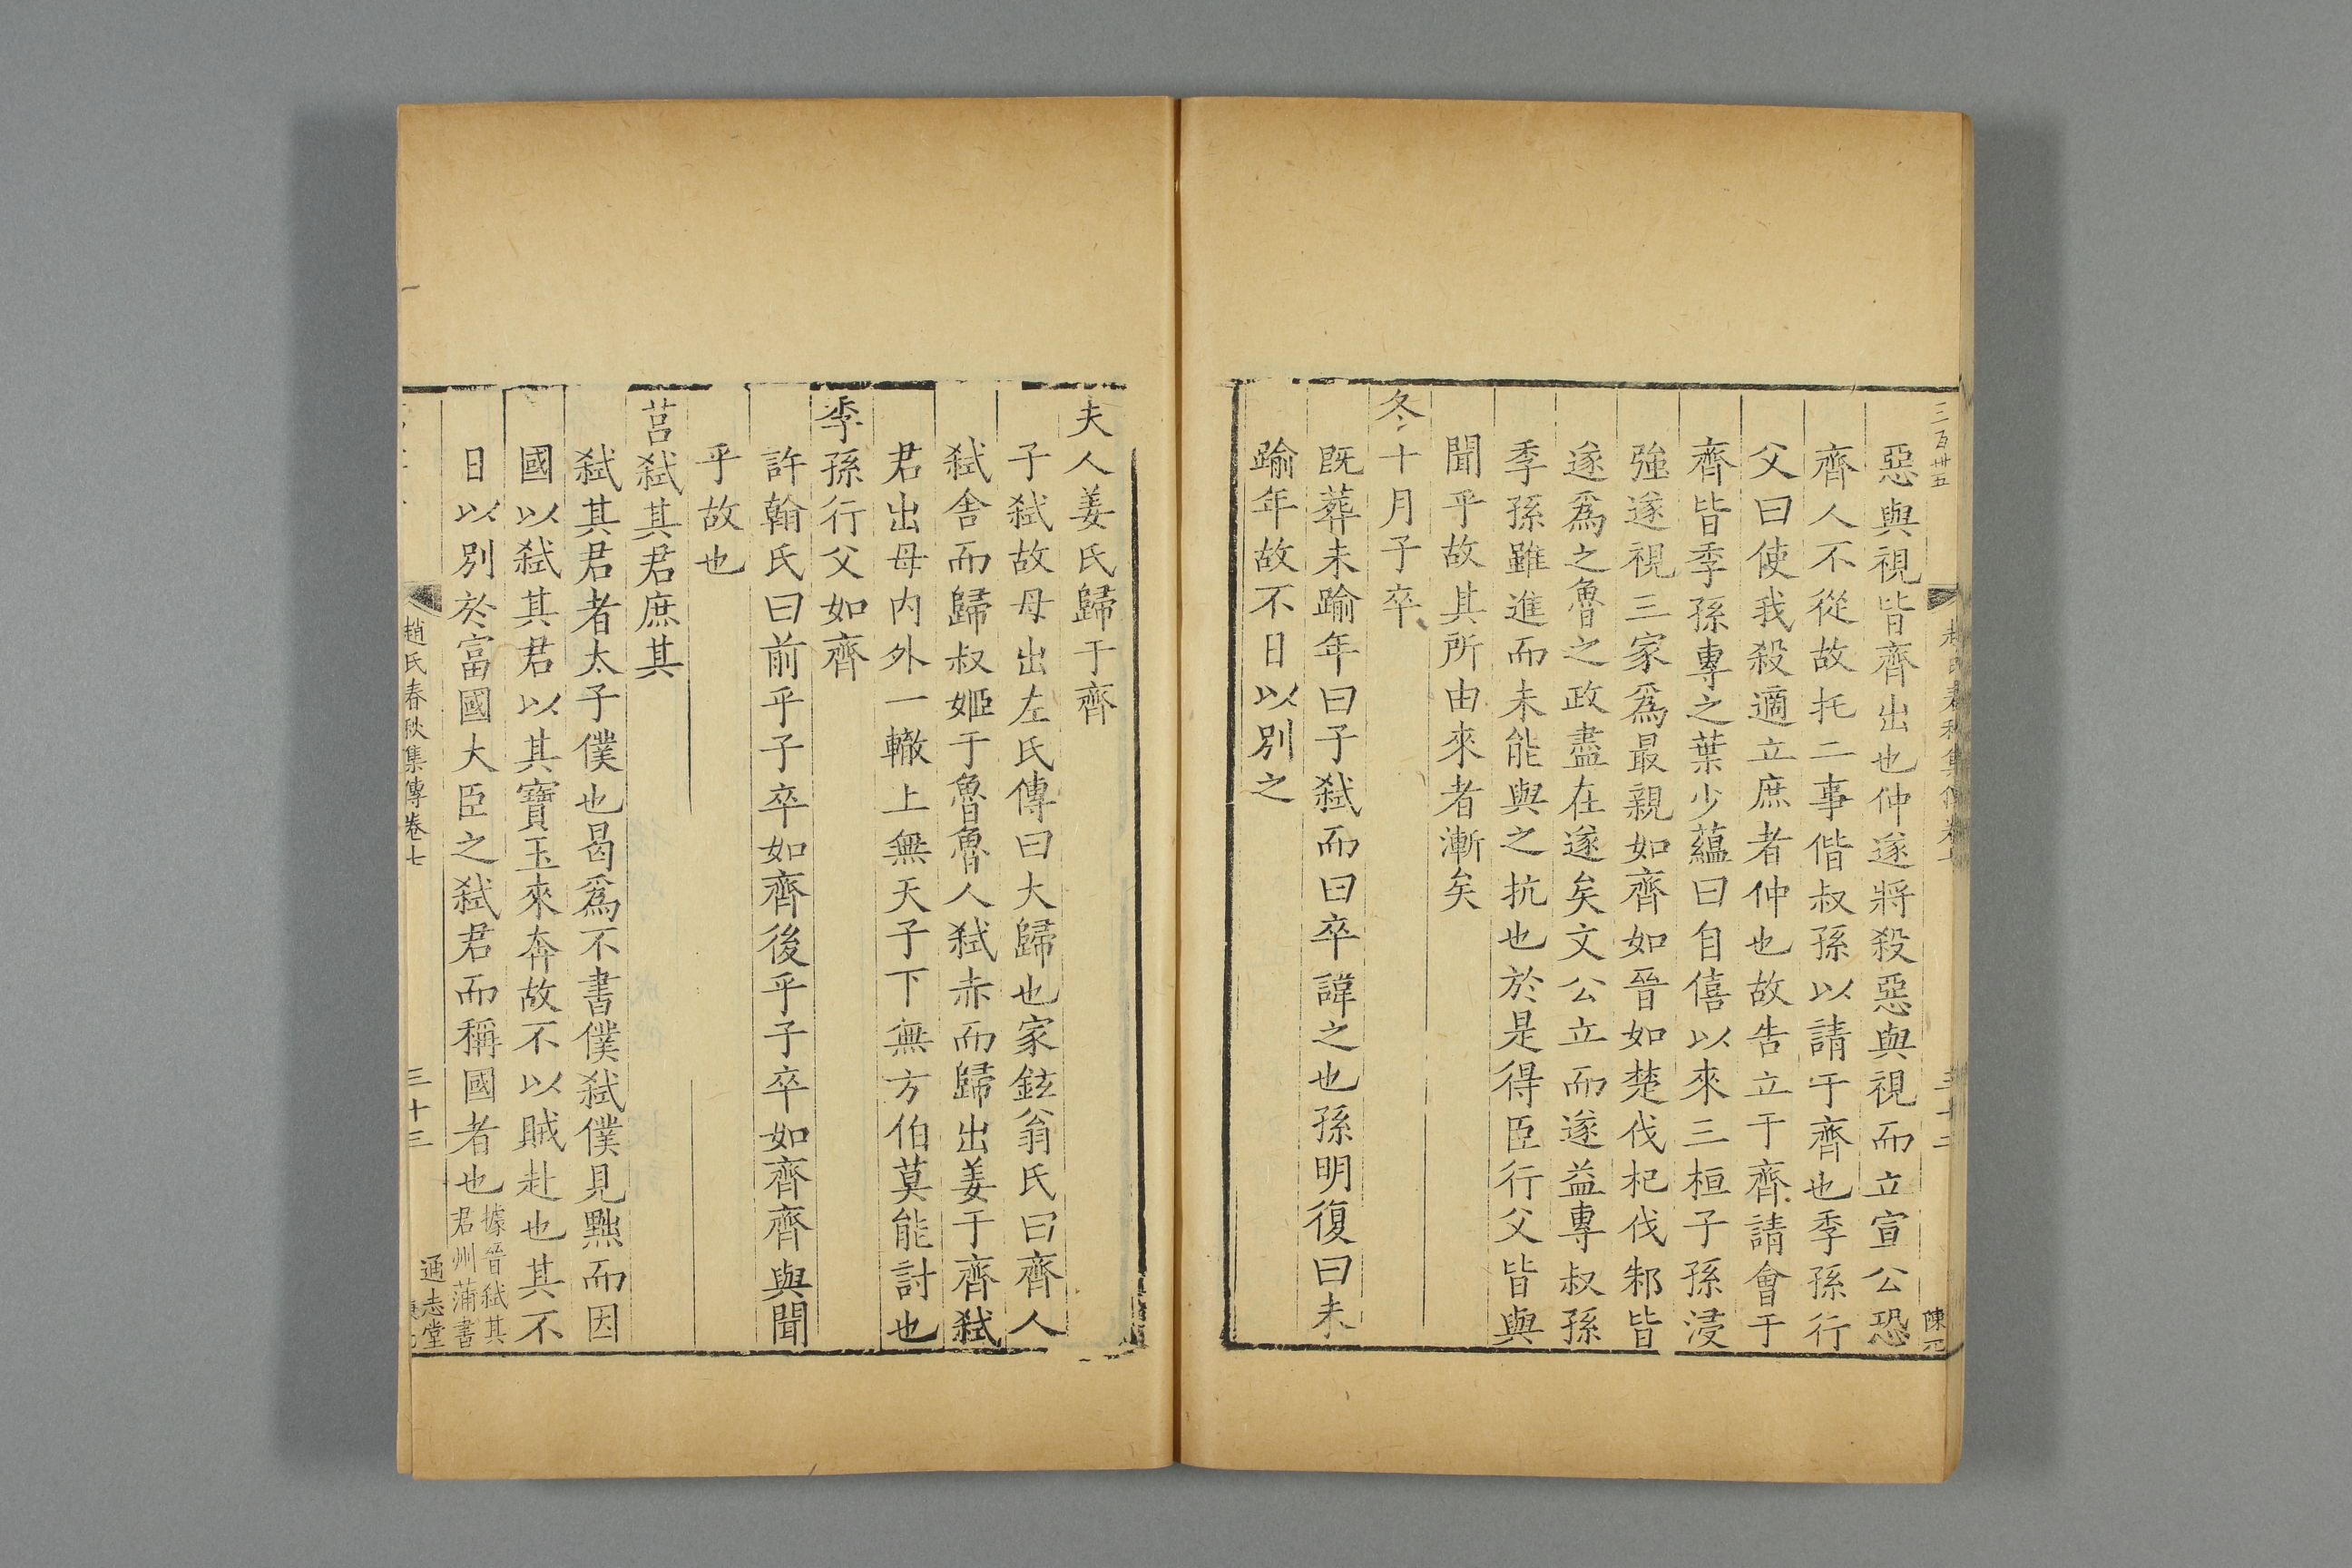 三百卅五
惡與視皆齊出也仲遂將殺惡與視而立宣公恐
齊人不從故托二事偕叔孫以請于齊也季孫行
父曰使我殺適立庶者仲也故告立于齊請會于
齊皆季孫專之葉少蘊曰自僖以來三桓子孫浸
強遂視三家爲最親如齊如晉如楚伐杞伐邾皆
遂爲之魯之政盡在遂矣文公立而遂益專叔孫
季孫雖進而未能與之抗也於是得臣行父皆與
聞乎故其所由來者漸矣
冬十月子卒
既葬未踰年曰子弒而曰卒諱之也孫明復曰未
踰年故不日以別之
夫人姜氏歸于齊
子弒故母出左氏傳曰大歸也家鉉翁氏曰齊人
弒舍而歸叔姬于魯魯人弒赤而歸出姜于齊弒
君出母内外一轍上無天子下無方伯莫能討也
季孫行父如齊
許翰氏曰前乎子卒如齊後乎子卒如齊齊與聞
乎故也
莒弒其君庶其
弒其君者太子僕也曷爲不書僕弒僕見黜而因
國以弒其君以其寶玉來奔故不以賊赴也其不
日以別於富國大臣之弒君而稱國者也據晉弒其
君州蒲書
趙氏春秋集傳卷七
三十三
通志堂